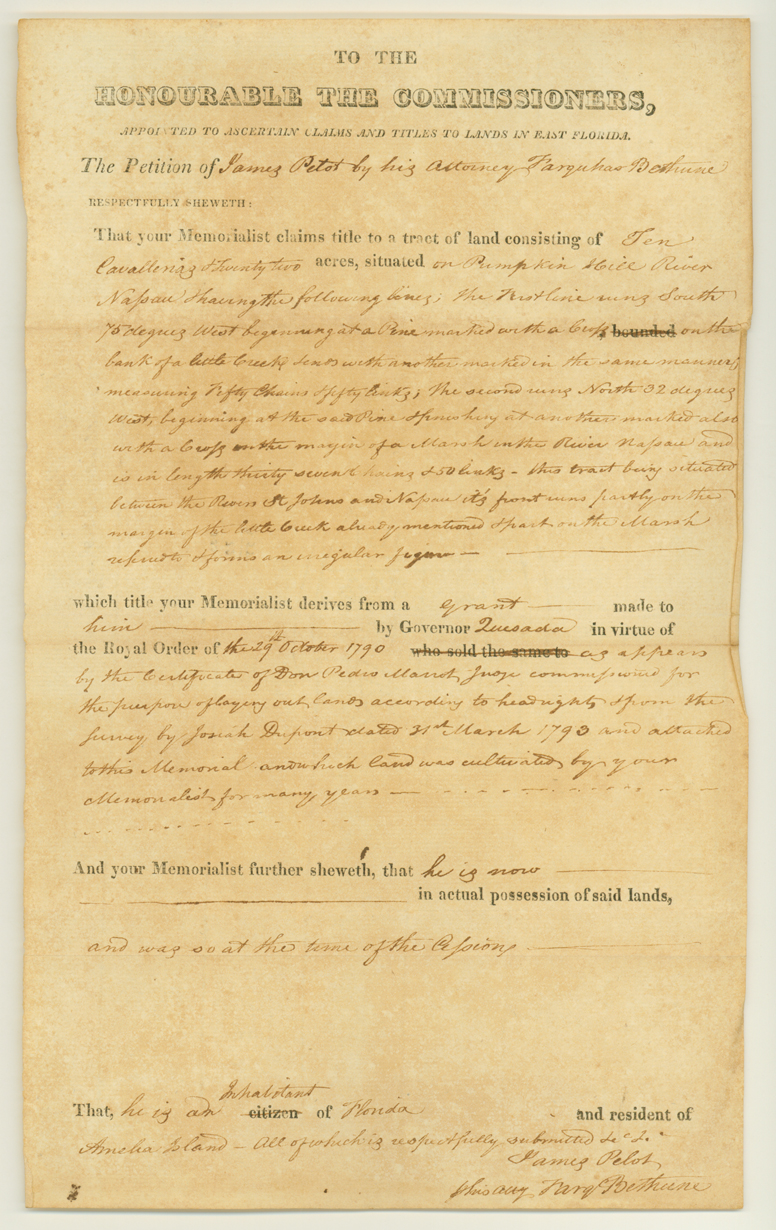 TO THE
HONOURABLE THE COMMISSIONERS,
APPOINTED TO ASCERTAIN CLAIMS AND TITLES TO LANDS IN EAST FLORIDA.
The Petition of James Pelot by his Attorney Farquhar Bethune
RESPECTFULLY SHEWETH:
That your Memorialist claims title to a tract of land consisting of Ten
Cavallerias & twenty two acres, situated on Pumpkin Hill River
Nassau & having the following lines; the First line runs South
75 degrees West beginning at a Pine marked with a Cross, bounded on the
bank of a little Creek & ends with another marked in the same manner;
measuring Fifty Chains & fifty links; The second runs North 32 degrees
West, beginning at the said Pine & finishing at another marked also
with a Cross on the margin of a Marsh in the River Nassau and
is in length thirty seven Chains & 50 links - this tract being situated
between the Rivers St Johns and Nassau it's front runs partly on the
margin of the little Creek already mentioned & part on the Marsh
refered to & forms an irregular figure —
which title your Memorialist derives from a grant made to
him by Governor Quesada in virtue of
the Royal Order of the 29th October 1790 who sold the same to as appears
by the Certificate of Don Pedro Marrot Judge commissioned for
the purpose of laying out lands according to headrights & from the
Survey by Josiah Dupont dated 31st March 1793 and attached
to this Memorial and which land was cultivated by your
Memorialist for many years —
And your Memorialist further sheweth, that he is now
in actual possession of said lands,
and was so at the time of the Cession
Inhabitant
That, he is an citizen of Florida and resident of
Amelia Island - All of which is respectfully submitted &c &c
James Pelot
by his atty Farqr Bethune